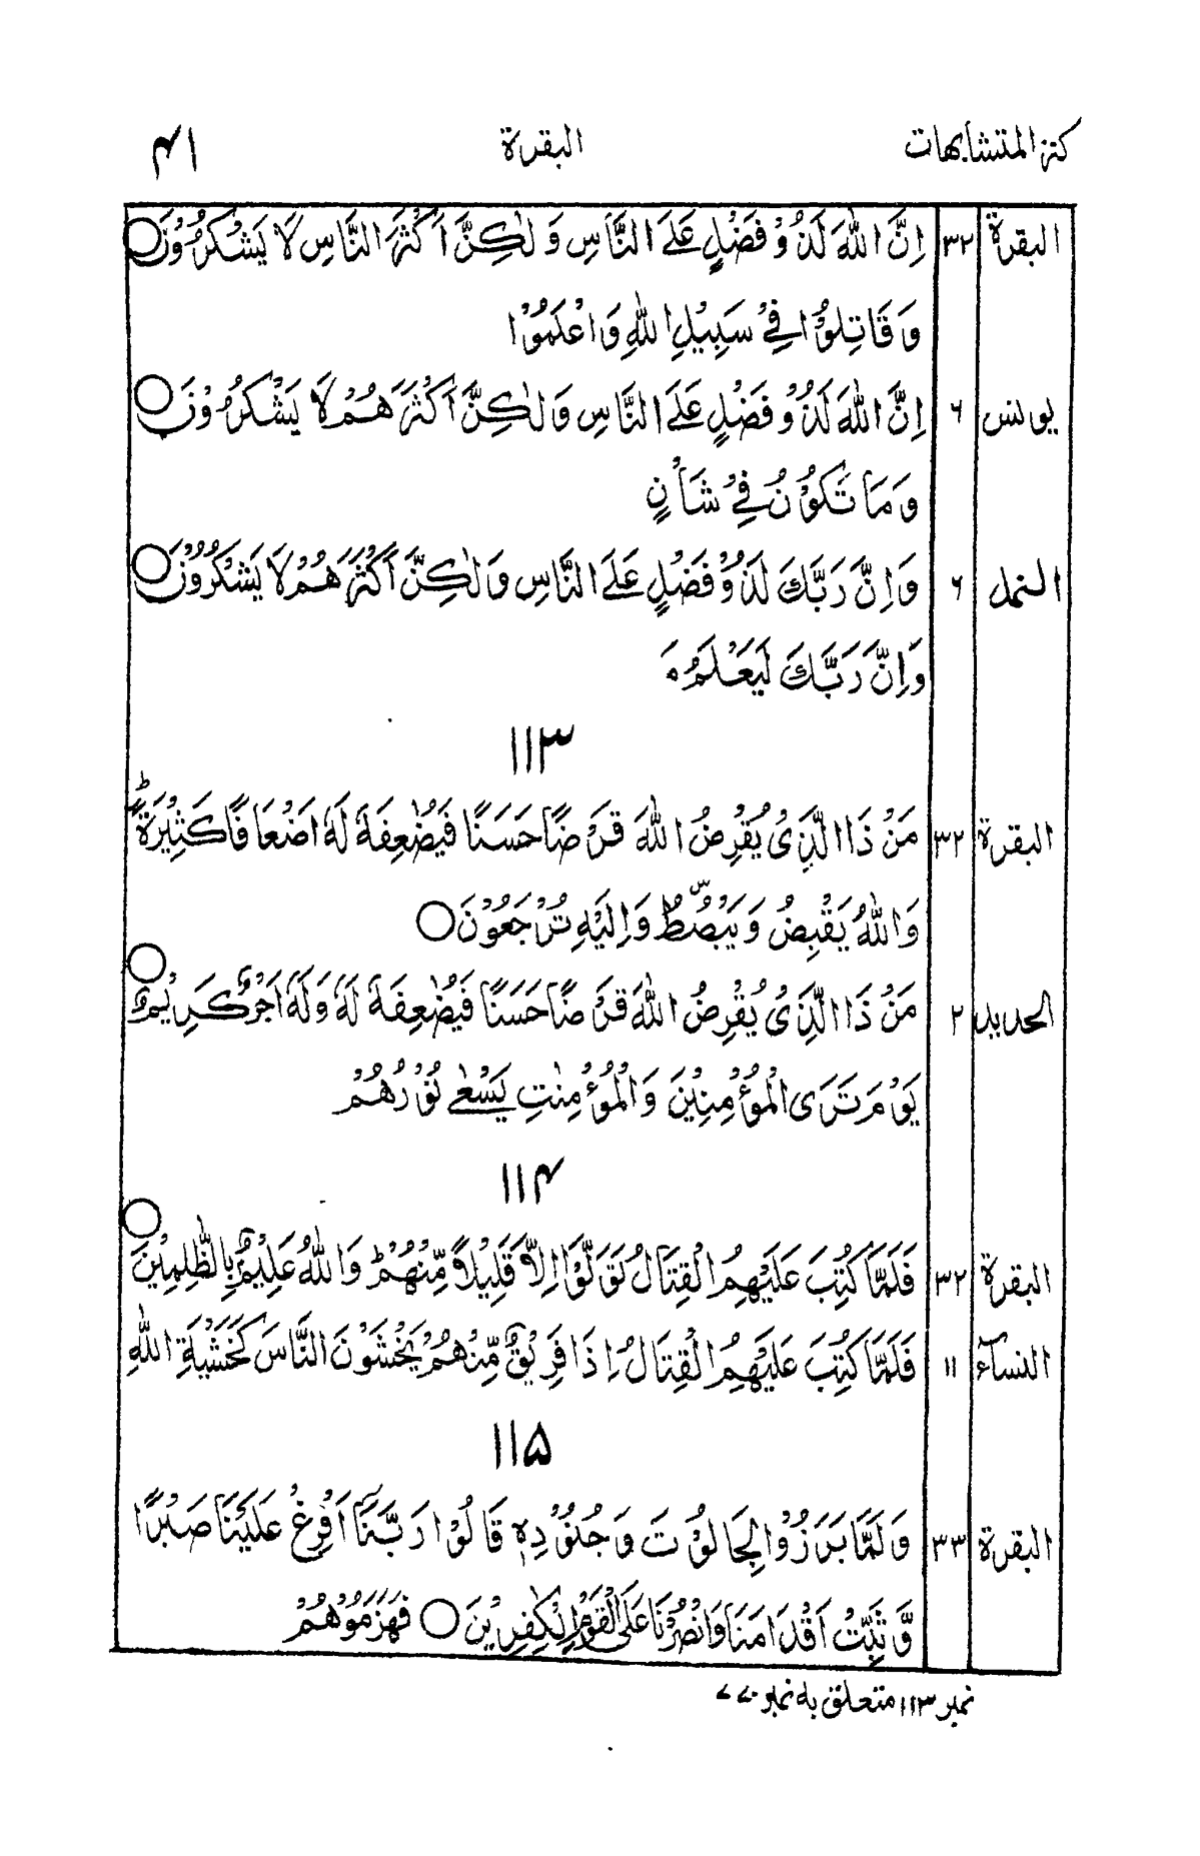 کنز المتشابہات البقرۃ ۴۱
البقرۃ ۳۲ اِنَّ اللّٰهَ لَذُوْ فَضْلٍ عَلَى النَّاسِ وَلٰكِنَّ اَكْثَرَ النَّاسِ لَا يَشْكُرُوْنَ ○
وَقَاتِلُوْا فِيْ سَبِيْلِ اللّٰهِ وَاعْلَمُوْا
يونس ۶ اِنَّ اللّٰهَ لَذُوْ فَضْلٍ عَلَى النَّاسِ وَلٰكِنَّ اَكْثَرَهُمْ لَا يَشْكُرُوْنَ ○
وَمَا تَكُوْنُ فِيْ شَاْنٍ
النمل ۶ وَاِنَّ رَبَّكَ لَذُوْ فَضْلٍ عَلَى النَّاسِ وَلٰكِنَّ اَكْثَرَهُمْ لَا يَشْكُرُوْنَ ○
وَاِنَّ رَبَّكَ لَيَعْلَمُ
۱۱۳
البقرۃ ۳۲ مَنْ ذَا الَّذِىْ يُقْرِضُ اللّٰهَ قَرْضًا حَسَنًا فَيُضٰعِفَهٗ لَهٗۤ اَضْعَافًا كَثِيْرَةً ؕ
وَاللّٰهُ يَقْبِضُ وَيَبْصُۜطُ وَاِلَيْهِ تُرْجَعُوْنَ ○
الحديد ۲ مَنْ ذَا الَّذِىْ يُقْرِضُ اللّٰهَ قَرْضًا حَسَنًا فَيُضٰعِفَهٗ لَهٗ وَلَهٗۤ اَجْرٌ كَرِيْمٌ ○
يَوْمَ تَرَى الْمُؤْمِنِيْنَ وَالْمُؤْمِنٰتِ يَسْعٰى نُوْرُهُمْ
۱۱۴
البقرۃ ۳۲ فَلَمَّا كُتِبَ عَلَيْهِمُ الْقِتَالُ تَوَلَّوْا اِلَّا قَلِيْلًا مِّنْهُمْ ؕ وَاللّٰهُ عَلِيْمٌۢ بِالظّٰلِمِيْنَ ○
النسآء ۱۱ فَلَمَّا كُتِبَ عَلَيْهِمُ الْقِتَالُ اِذَا فَرِيْقٌ مِّنْهُمْ يَخْشَوْنَ النَّاسَ كَخَشْيَةِ اللّٰهِ
۱۱۵
البقرۃ ۳۳ وَلَمَّا بَرَزُوْا لِجَالُوْتَ وَجُنُوْدِهٖ قَالُوْا رَبَّنَاۤ اَفْرِغْ عَلَيْنَا صَبْرًا
وَّثَبِّتْ اَقْدَامَنَا وَانْصُرْنَا عَلَى الْقَوْمِ الْكٰفِرِيْنَ ○ فَهَزَمُوْهُمْ
نمبر ۱۱۳ متعلق بہ نمبر ۷۷۰